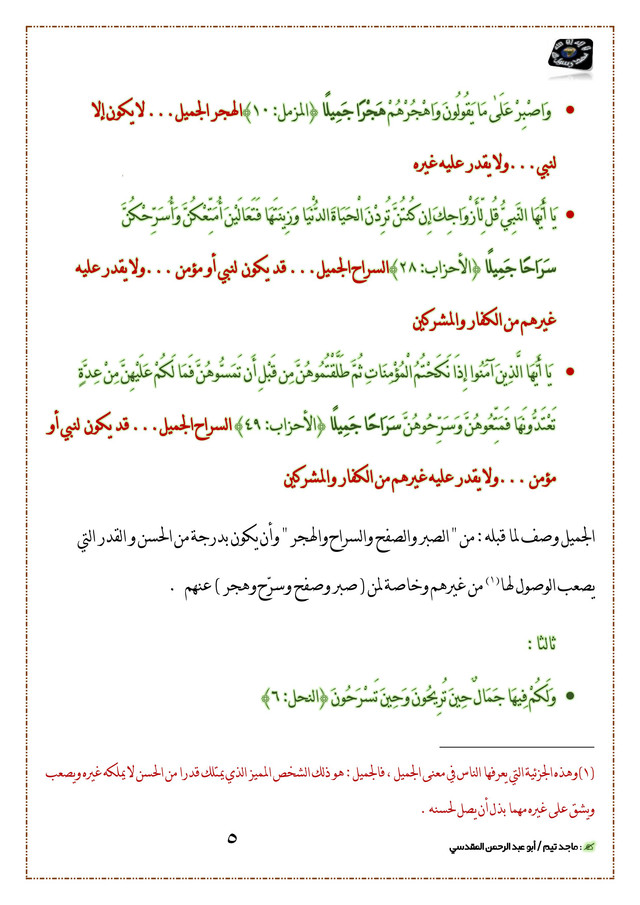 • وَاصْبِرْ عَلَىٰ مَا يَقُولُونَ وَاهْجُرْهُمْ هَجْرًا جَمِيلًا ﴿المزمل: ١٠﴾الهجر الجميل ... لا يكون إلا
لنبي ... ولا يقدر عليه غيره
• يَا أَيُّهَا النَّبِيُّ قُل لِّأَزْوَاجِكَ إِن كُنتُنَّ تُرِدْنَ الْحَيَاةَ الدُّنْيَا وَزِينَتَهَا فَتَعَالَيْنَ أُمَتِّعْكُنَّ وَأُسَرِّحْكُنَّ
سَرَاحًا جَمِيلًا ﴿الأحزاب: ٢٨﴾السراح الجميل ... قد يكون لنبي أو مؤمن ... ولا يقدر عليه
غيرهم من الكفار والمشركين
• يَا أَيُّهَا الَّذِينَ آمَنُوا إِذَا نَكَحْتُمُ الْمُؤْمِنَاتِ ثُمَّ طَلَّقْتُمُوهُنَّ مِن قَبْلِ أَن تَمَسُّوهُنَّ فَمَا لَكُمْ عَلَيْهِنَّ مِنْ عِدَّةٍ
تَعْتَدُّونَهَا فَمَتِّعُوهُنَّ وَسَرِّحُوهُنَّ سَرَاحًا جَمِيلًا ﴿الأحزاب: ٤٩﴾السراح الجميل ... قد يكون لنبي أو
مؤمن ... ولا يقدر عليه غيرهم من الكفار والمشركين
الجميل وصف لما قبله : من " الصبر والصفح والسراح والهجر " وأن يكون بدرجة من الحسن و القدر التي
يصعب الوصول لها (١) من غيرهم وخاصة لمن ( صبر وصفح وسرّح وهجر ) عنهم .
ثالثا :
• وَلَكُمْ فِيهَا جَمَالٌ حِينَ تُرِيحُونَ وَحِينَ تَسْرَحُونَ ﴿النحل: ٦﴾
(١) وهذه الجزئية التي يعرفها الناس في معنى الجميل ، فالجميل : هو ذلك الشخص المميز الذي يمتلك قدرا من الحسن لا يملكه غيره ويصعب
ويشق على غيره مهما بذل أن يصل لحسنه .
: ماجد تيم / أبو عبد الرحمن المقدسي
٥